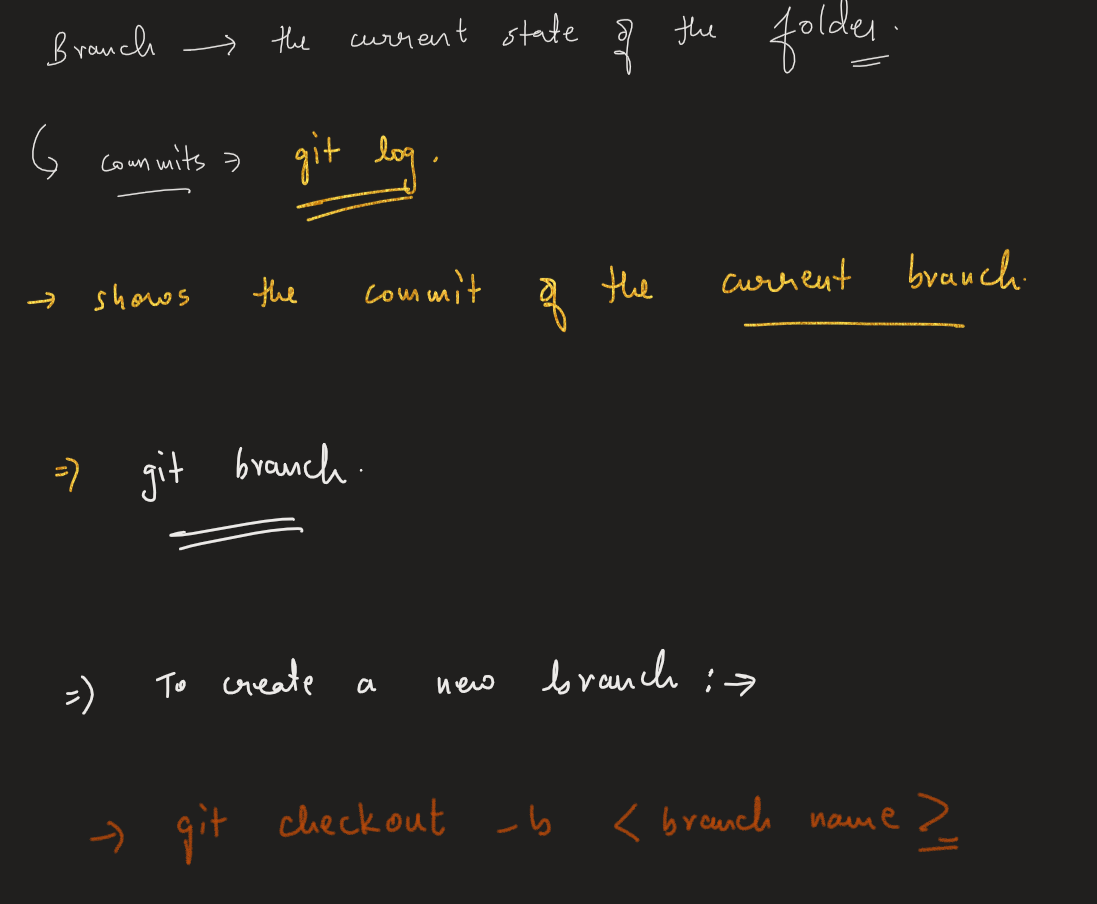 Branch → the current state of the folder.
↳ commits ⇒ git log.
→ shows the commit of the current branch.
⇒ git branch.
⇒ To create a new branch :→
→ git checkout -b < branch name >